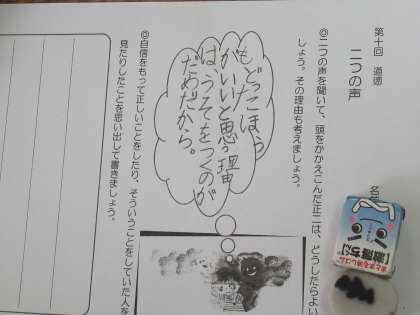 第十回 道徳
二つの声
名
◎二つの声を聞いて、頭をかかえこんだ正二は、どうしたらよい
しょう。その理由も考えましょう。
もどったほう
がいいと思う理由
は、うそをつくのが
だめだから。
◎自信をもって正しいことをしたり、そういうことをしていた人を
見たりしたことを思い出して書きましょう。